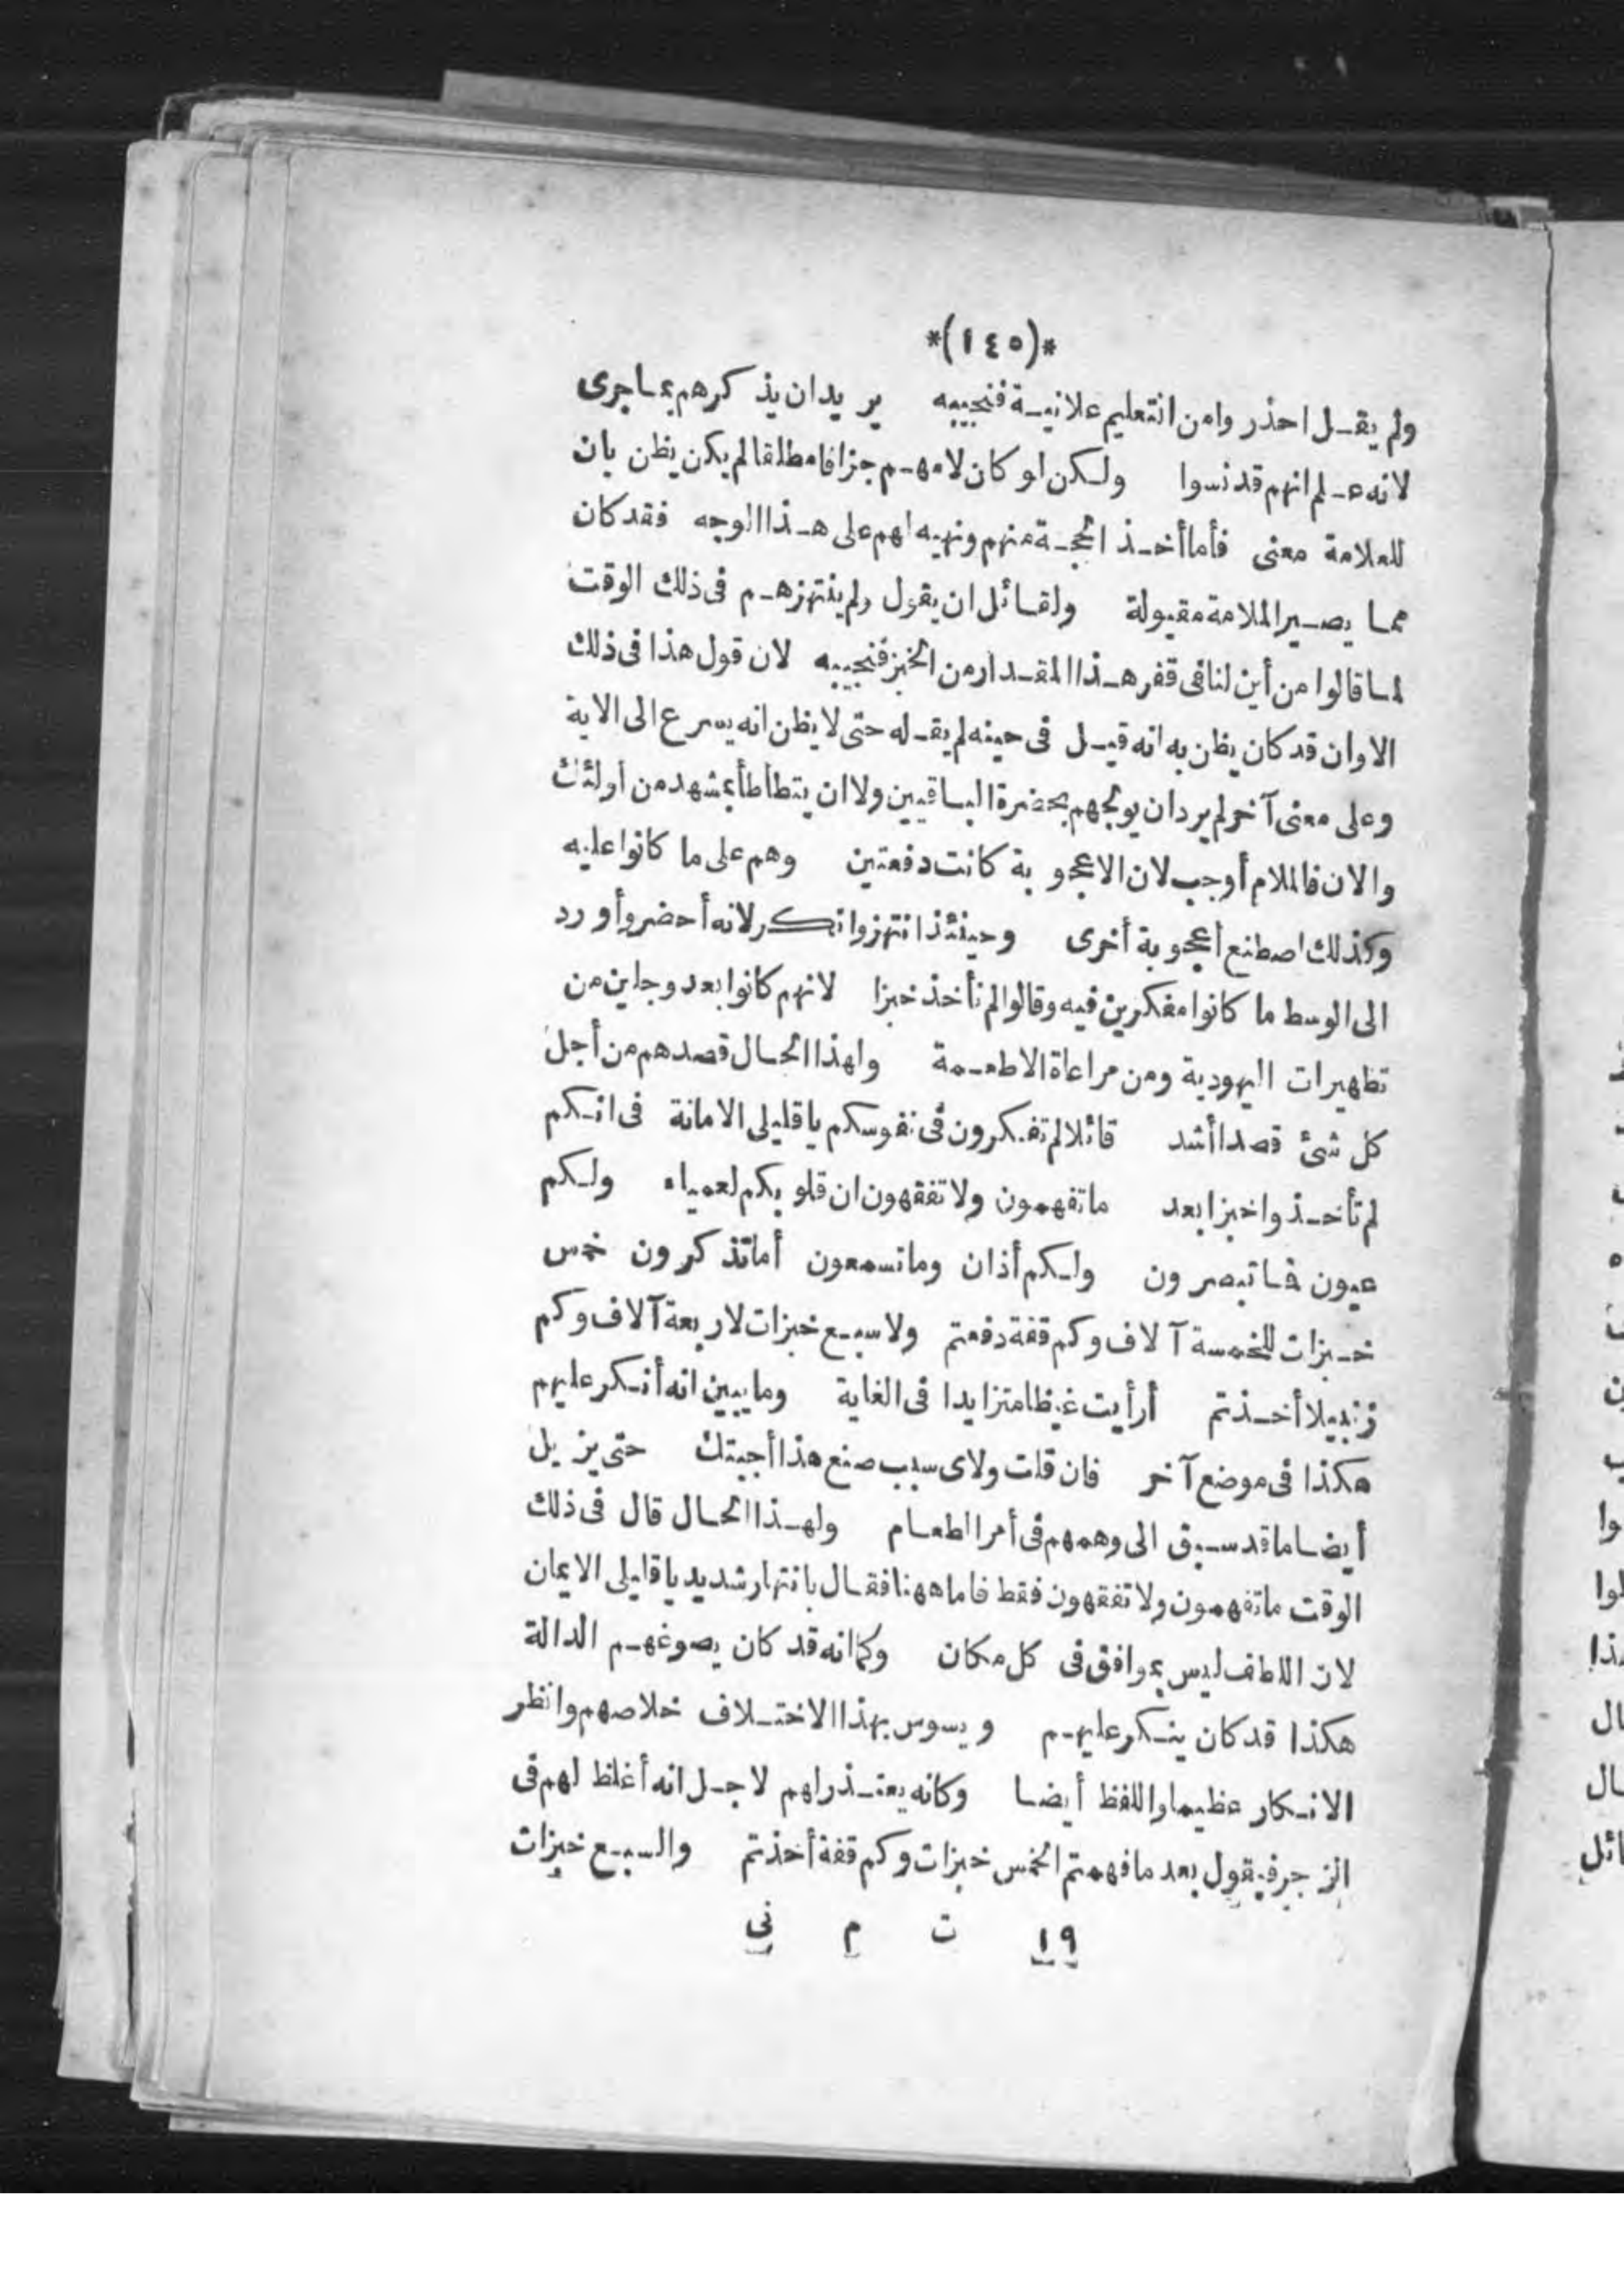 *(١٤٥)*
ولم يقل احذر وامن التعليم علانية فنجيبه يريد ان يذكرهم بما جرى
لانه علم انهم قد نسوا ولكن لو كان لامهم جزافا مطلقا لم يكن يظن بان
للعلامة معنى فأما أخذ الحجة منهم ونهيه لهم على هذا الوجه فقد كان
مما يصير الملامة مقبولة ولقائل ان يقول ولم ينتهزهم فى ذلك الوقت
لما قالوا من أين لنا فى قفر هذا المقدار من الخبز فنجيبه لان قول هذا فى ذلك
الاوان قد كان يظن به انه قيل فى حينه لم يقله حتى لا يظن انه يسرع الى الاية
وعلى معنى آخر لم يرد ان يوبخهم بحضرة الباقيين ولا ان يتطأطأ بمشهد من أولئك
والان فالملام أوجب لان الاعجوبة كانت دفعتين وهم على ما كانوا عليه
وكذلك اصطنع أعجوبة أخرى وحينئذ انتهز وانكر لانه أحضر وأورد
الى الوسط ما كانوا مفكرين فيه وقالوا لم نأخذ خبزا لانهم كانوا بعد وجلين من
تظهيرات اليهودية ومن مراعاة الاطعمة ولهذا الحال قصدهم من أجل
كل شئ قصدا أشد قائلا لم تفكرون فى نفوسكم يا قليلى الامانة فى انكم
لم تأخذوا خبزا بعد ما تفهمون ولا تفقهون ان قلوبكم لعمياء ولكم
عيون فما تبصرون ولكم أذان وما تسمعون أما تذكرون خمس
خبزات للخمسة آلاف وكم قفة دفعتم ولا سبع خبزات لاربعة آلاف وكم
زنبيلا أخذتم أرأيت غيظا متزايدا فى الغاية وما يبين انه أنكر عليهم
هكذا فى موضع آخر فان قلت ولاى سبب صنع هذا أجبتك حتى يزيل
أيضا ما قد سبق الى وهمهم فى أمر الطعام ولهذا الحال قال فى ذلك
الوقت ما تفهمون ولا تفقهون فقط فاما ههنا فقال بانتهار شديد يا قليلى الايمان
لان اللطف ليس بموافق فى كل مكان وكما انه قد كان يصوغهم الدالة
هكذا قد كان ينكر عليهم ويسوس بهذا الاختلاف خلاصهم وانظر
الانكار عظيما واللفظ أيضا وكانه يعتذر لهم لاجل انه أغلظ لهم فى
الزجر فيقول بعد ما فهمتم الخمس خبزات وكم قفة أخذتم والسبع خبزات
١٩ ت م نى